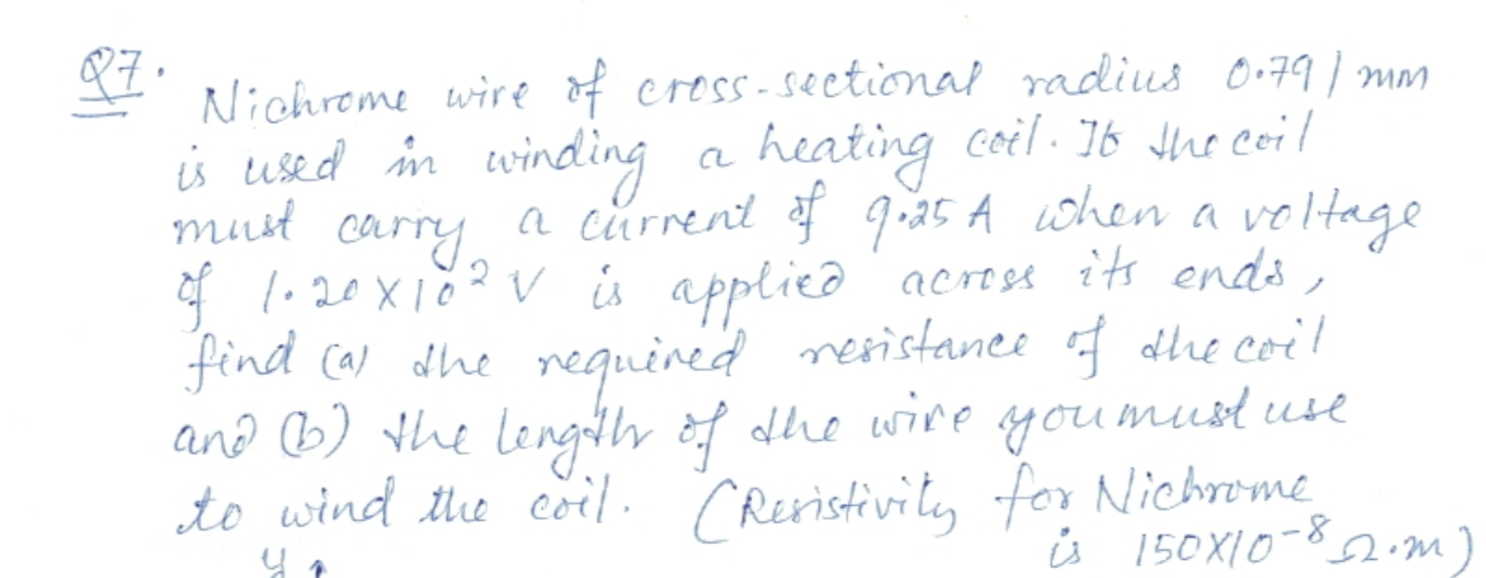 Q7. Nichrome wire of cross-sectional radius 0.791 mm
is used in winding a heating coil. If the coil
must carry a current of 9.25 A when a voltage
of 1.20 X 10² V is applied across its ends,
find (a) the required resistance of the coil
and (b) the length of the wire you must use
to wind the coil. (Resistivity for Nichrome
is 150X10⁻⁸ Ω.m)
y